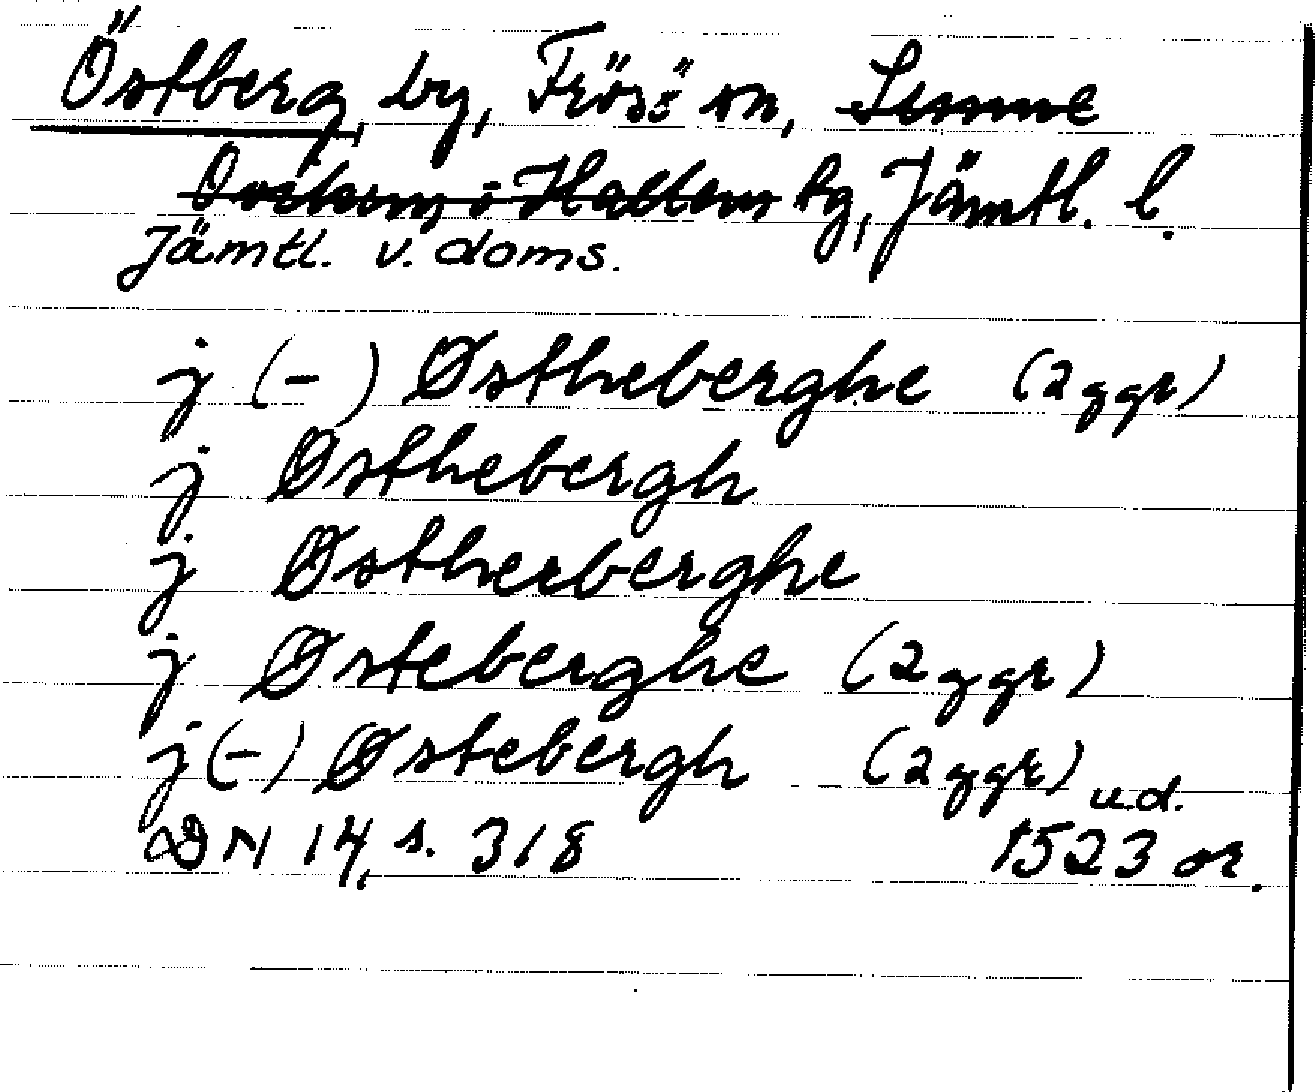 Östberg, by, Frösö sn, Sunne
Oviken o Hallen tg, Jämtl. l.
Jämtl. v. doms.
j (-) Østheberghe (2 ggr)
j Østhebergh
j Østherberghe
j Østeberghe (2 ggr)
j (-) Østebergh (2 ggr)
u.d.
DN 14, s. 318 1523 or.